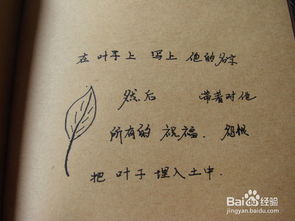 在 叶子上 写上 他的名字
然后 带著对他
所有的 祝福。
把 叶子 埋入土中.
Baidu 经验
jingyan.baidu.com